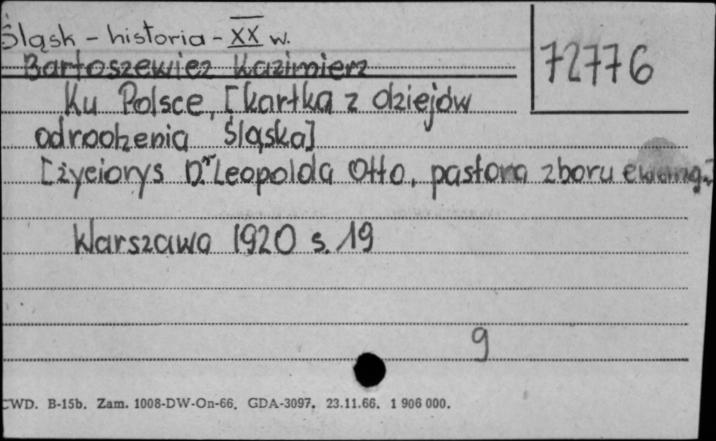 Śląsk - historia - XX w.
72776
Bartoszewicz Kazimierz
Ku Polsce, [kartka z dziejów
odrodzenia Śląska]
[życiorys Dr Leopolda Otto, pastora zboru ewang.]
Warszawa 1920 s. 19
9
CWD. B-15b. Zam. 1008-DW-On-66. GDA-3097. 23.11.66. 1 906 000.